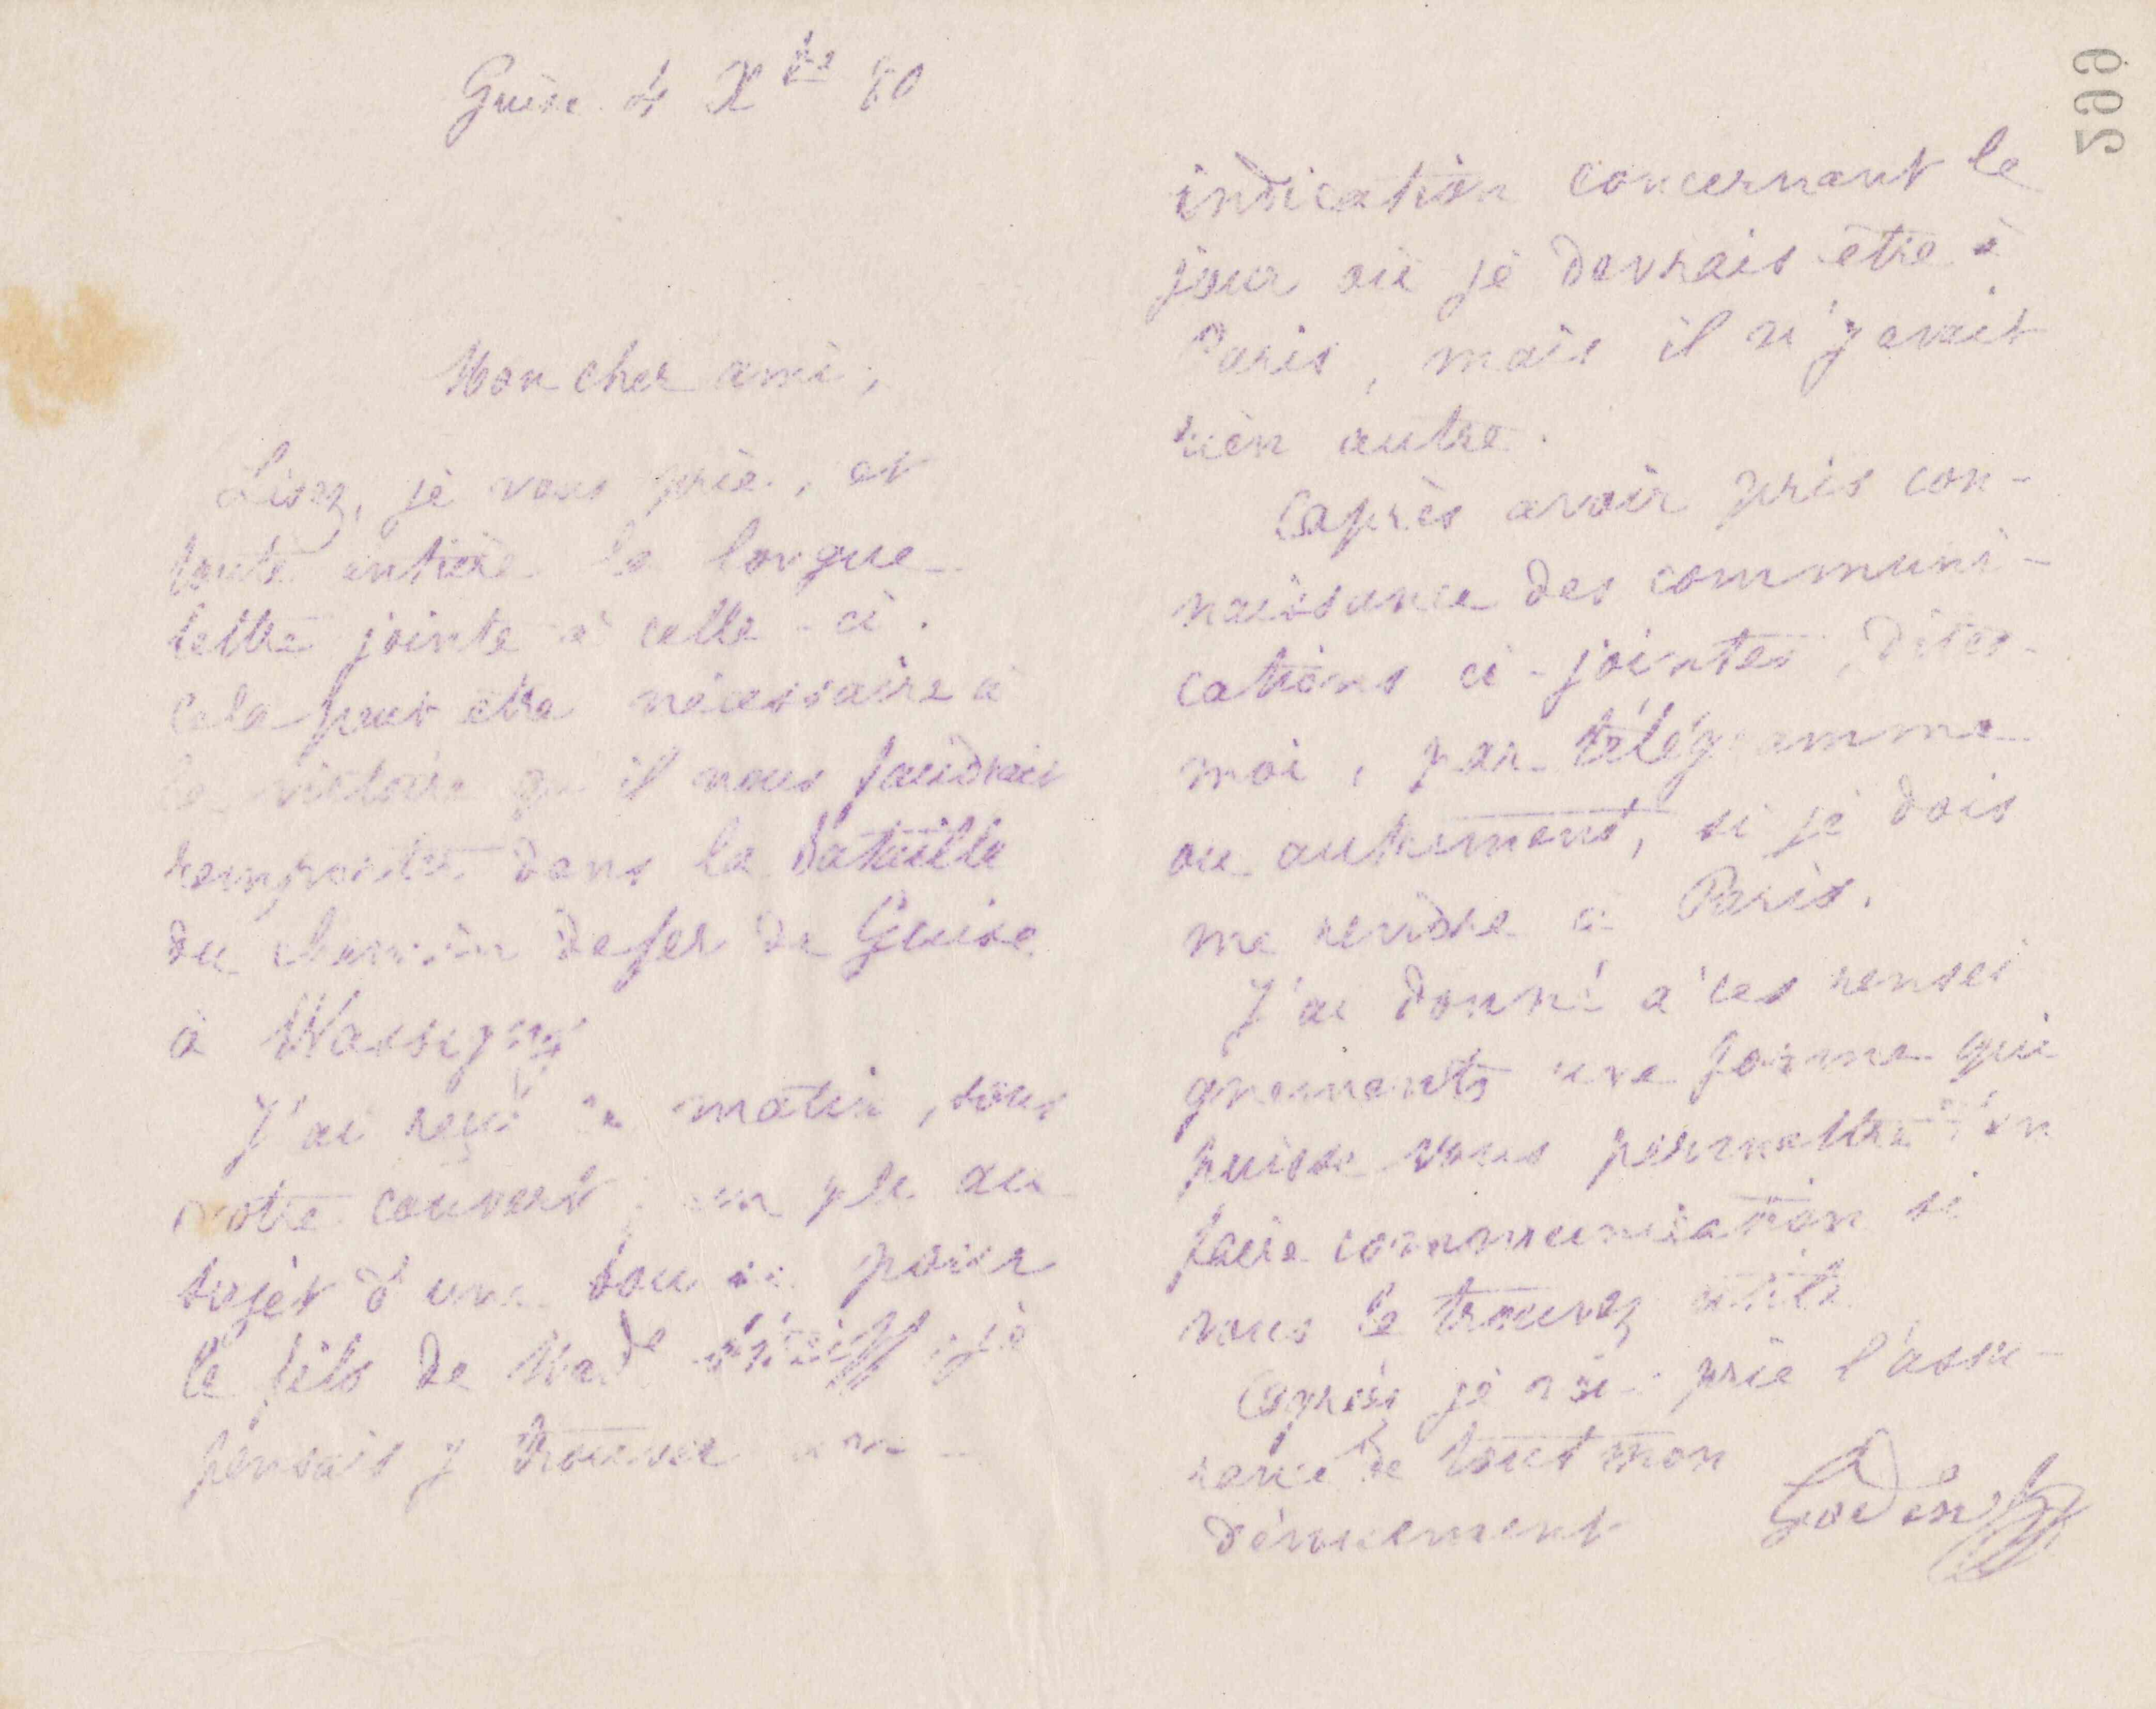 Guise 4 Xbre 80
Mon cher ami,
Lisez, je vous prie, et
toute entière la longue
lettre jointe à celle-ci.
Cela peut être nécessaire à
la victoire qu'il nous faudrait
remporter dans la bataille
du chemin de fer de Guise
à Wassigny
J'ai reçu ce matin, sous
votre couvert, un pli au
sujet d'une bourse pour
le fils de Made je
pensais y trouver une
599
indication concernant le
jour où je devrais être à
Paris, mais il n'y avait
rien autre.
Après avoir pris con-
naissance des communi-
cations ci-jointes, dites-
moi, par télégramme
ou autrement, si je dois
me rendre à Paris.
J'ai donné à ces rensei
gnements une forme qui
puisse vous permettre d'en
faire communication si
vous le trouvez utile
Agréez je vous prie l'assu-
rance de tout mon
dévouement Godin